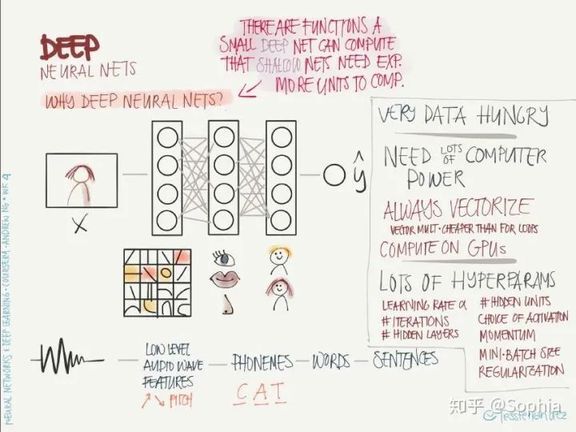 DEEP
NEURAL NETS
WHY DEEP NEURAL NETS?
THERE ARE FUNCTIONS A
SMALL DEEP NET CAN COMPUTE
THAT SHALLOW NETS NEED EXP.
MORE UNITS TO COMP.
X
ŷ
LOW LEVEL
AUDIO WAVE
FEATURES
PITCH
PHONEMES
C A T
WORDS
SENTENCES
VERY DATA HUNGRY
NEED LOTS OF COMPUTER
POWER
ALWAYS VECTORIZE
VECTOR MULT. CHEAPER THAN FOR LOOPS
COMPUTE ON GPUs
LOTS OF HYPERPARAMS
LEARNING RATE α
# ITERATIONS
# HIDDEN LAYERS
# HIDDEN UNITS
CHOICE OF ACTIVATION
MOMENTUM
MINI-BATCH SIZE
REGULARIZATION
NEURAL NETWORKS & DEEP LEARNING • COURSERA • ANDREW NG • WK 4
知乎 @Sophia